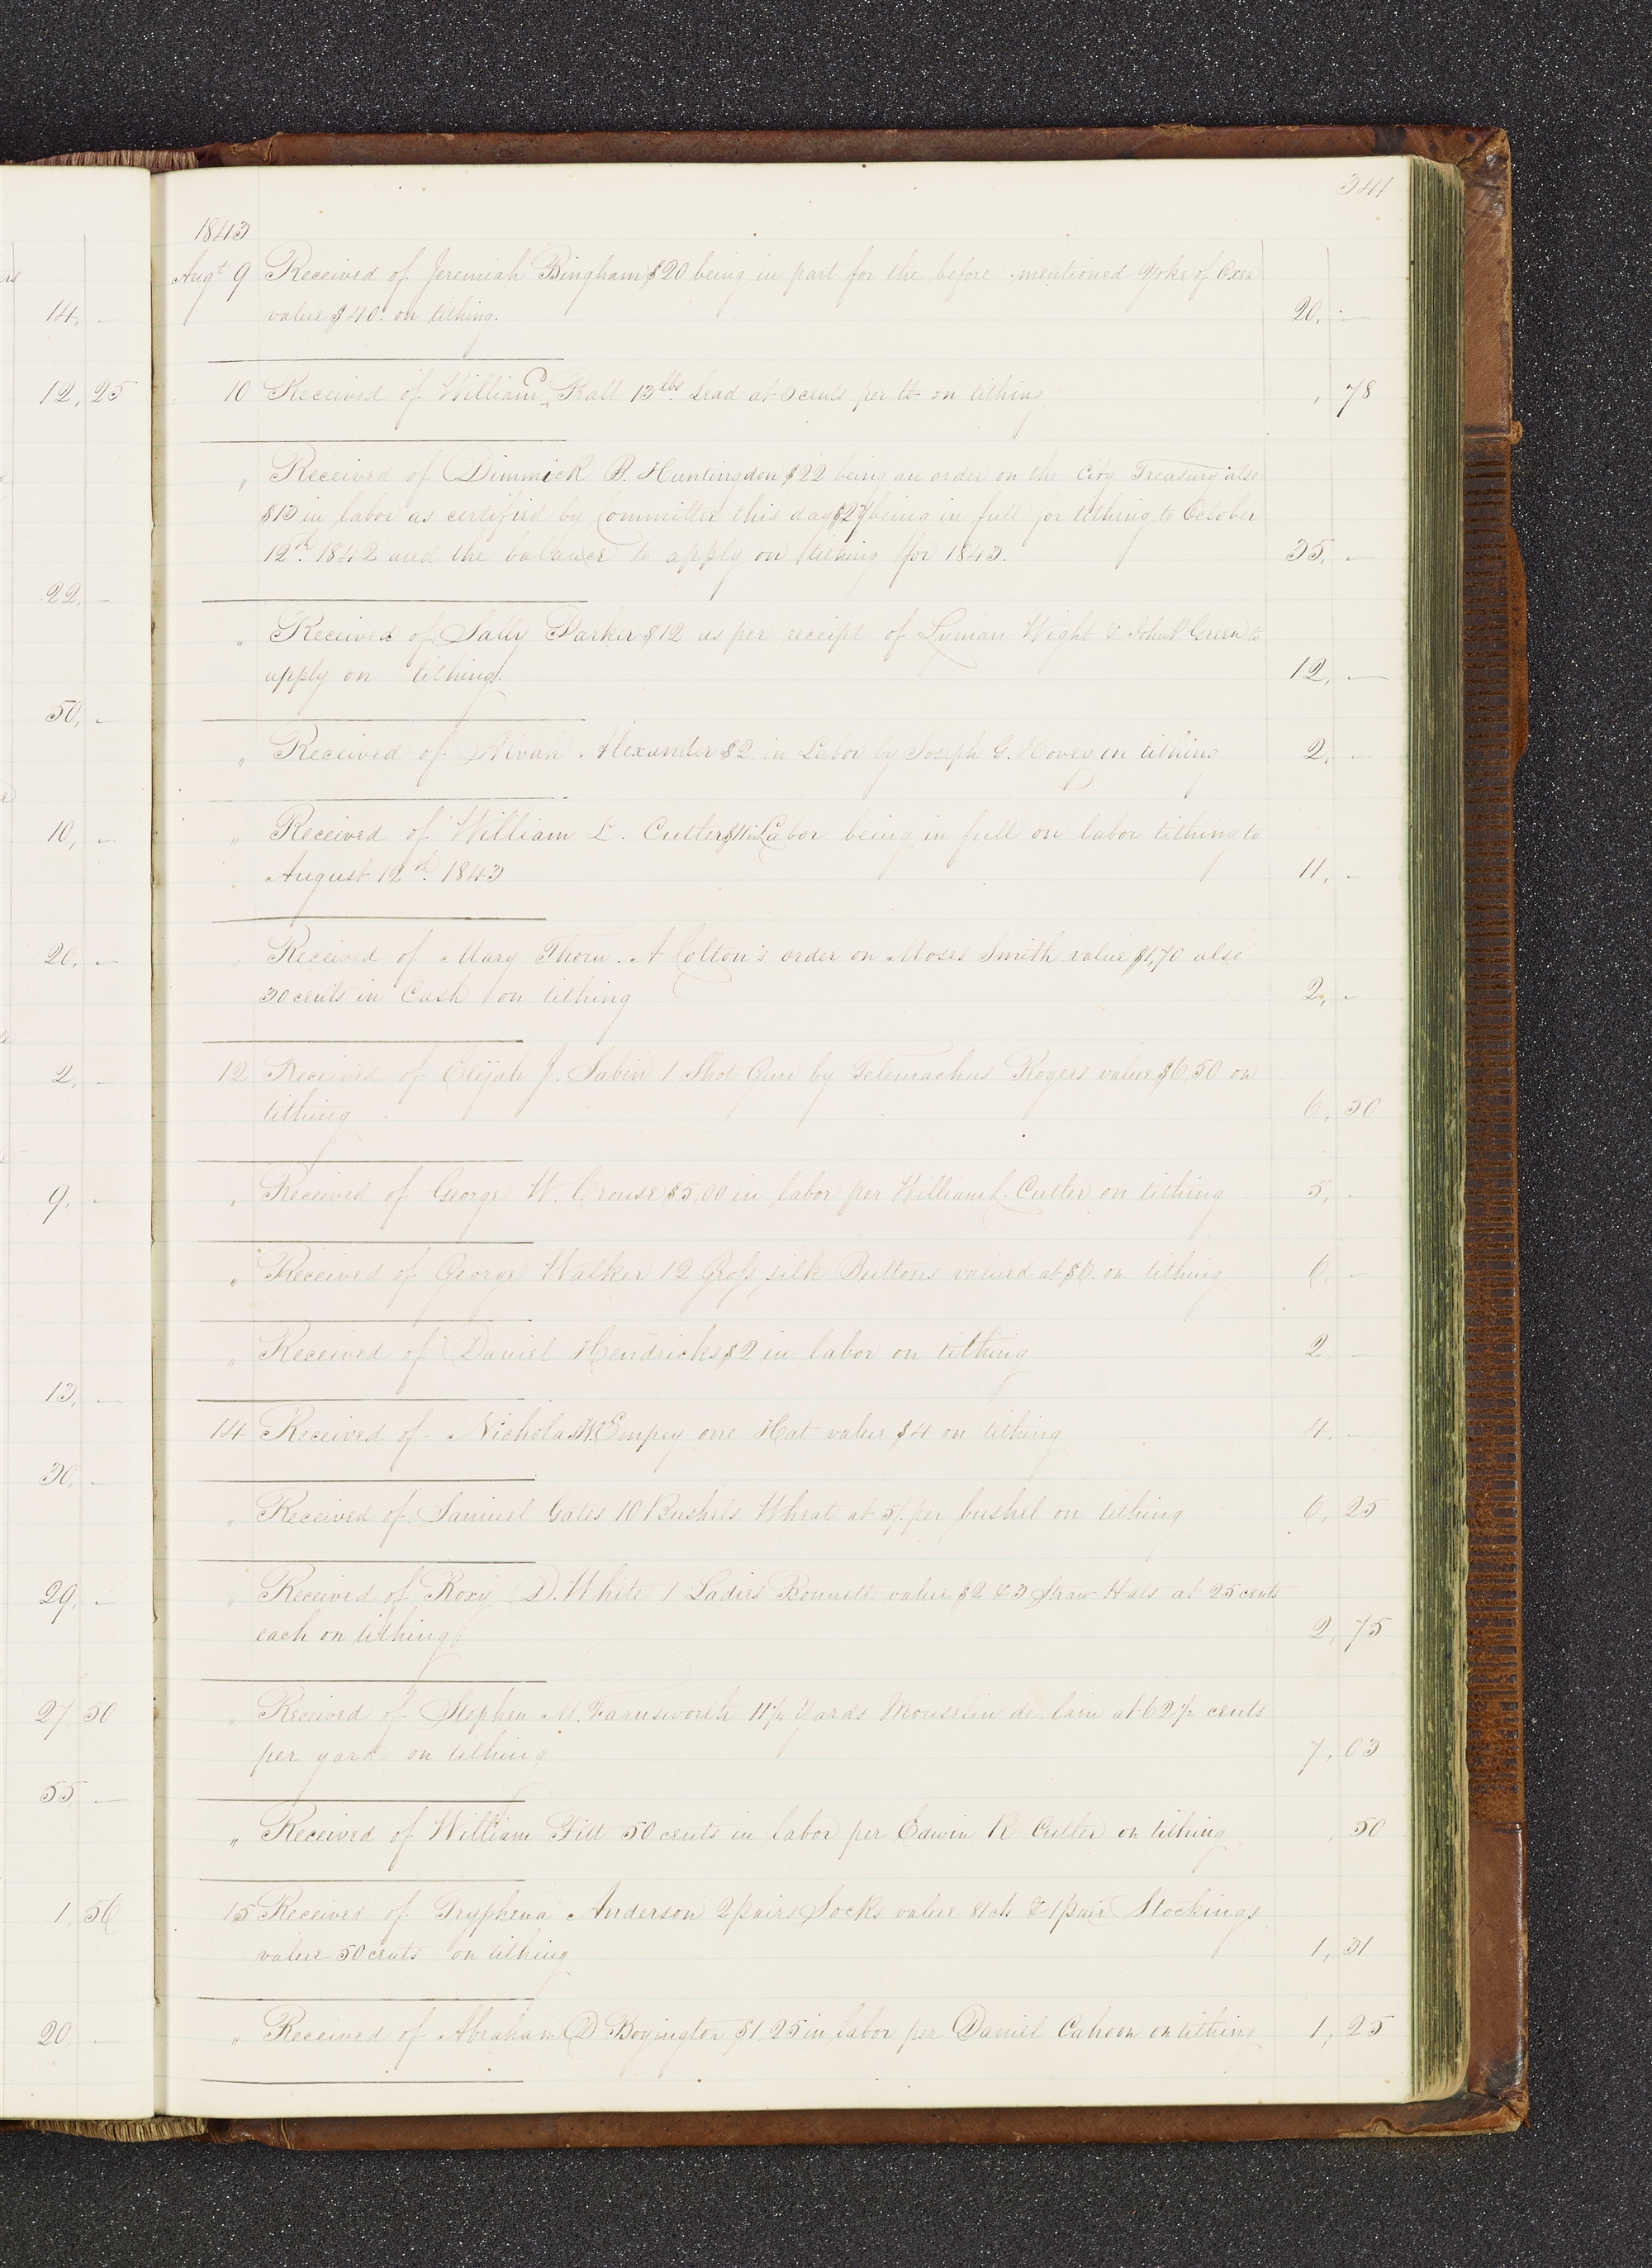 341
1843
Augt 9 Received of Jeremiah Bingham $20 being in part for the before mentioned Yoke of Oxen
14, - value $40. on tithing. 20, -
12, 25 10 Received of William C. Pratt 13 lbs. Lead at 6 cents per lb on tithing , 78
, Received of Dimmick B. Huntingdon $22 being an order on the City Treasury also
$13 in labor as certified by Committee this day $27 being in full for tithing to October
12th. 1842 and the balance to apply on tithing for 1843. 35, -
22, -
" Received of Sally Parker $12 as per receipt of Lyman Wight & John P. Green to
apply on tithing. 12, -
50, -
" Received of Alvah Alexander $2 in Labor by Joseph G. Hovey on tithing 2, -
10, - " Received of William L. Cutler $11 in Labor being in full on labor tithing to
August 12th. 1843 11, -
20, - " Received of Mary Thorn. A Colton's order on Moses Smith value $1,70 also
30 cents in Cash on tithing 2, -
2, - 12 Received of Elijah J. Sabin 1 Shot Gun by Telemachus Rogers value $6,50 on
tithing 6, 50
9, - " Received of George W. Crouse $5,00 in labor per William L. Cutler on tithing 5, -
" Received of George Walker 12 Gross silk Buttons valued at $6. on tithing 6 -
" Received of Daniel Hendricks $2 in labor on tithing 2 -
13, -
14 Received of Nicholas W. Empey one Hat value $4 on tithing 4, -
30, -
" Received of Samuel Gates 10 Bushels Wheat at 5/. per bushel on tithing 6, 25
29, - " Received of Roxy D. White 1 Ladies Bonnett value $2 & 3 Straw Hats at 25 cents
each on tithing 2, 75
27, 50 " Received of Stephen M. Farnsworth Yards Mouselin de lain at 62 1/2 cents
per yard on tithing 7, 63
55 -
" Received of William Pitt 50 cents in labor per Edwin R Cutler on tithing , 50
1, 56 15 Received of Tryphena Anderson 2 pairs Socks value 81 cts & 1 pair Stockings
value 50 cents on tithing 1, 31
20 - " Received of Abraham D Boyington $1,25 in labor per Daniel Cahoon on tithing 1, 25